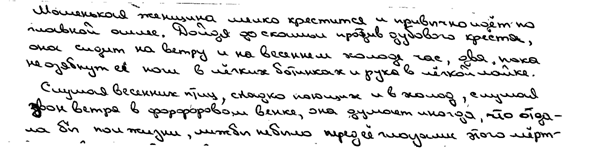 Маленькая женщина мелко крестится и привычно идёт по
главной аллее. Дойдя до скамьи против дубового креста,
она сидит на ветру и на весеннем холоде час, два, пока
не озябнут её ноги в лёгких ботинках и рука в лёгкой лайке.
Слушая весенних птиц, сладко поющих и в холод, слушая
звон ветра в фарфоровом венке, она думает иногда, что отда-
ла бы полжизни, лишь бы не было перед её глазами этого мёрт-